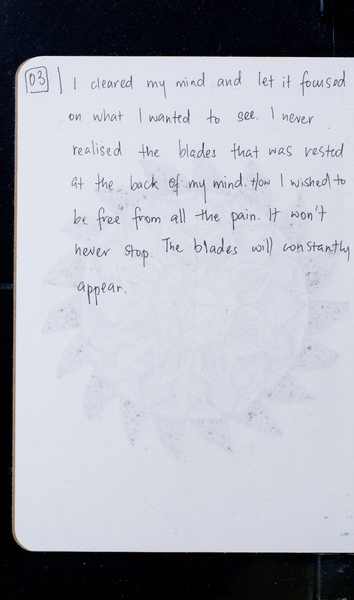 03 | I cleared my mind and let it focused
on what I wanted to see. I never
realised the blades that was rested
at the back of my mind. How I wished to
be free from all the pain. It won't
never stop. The blades will constantly
appear.